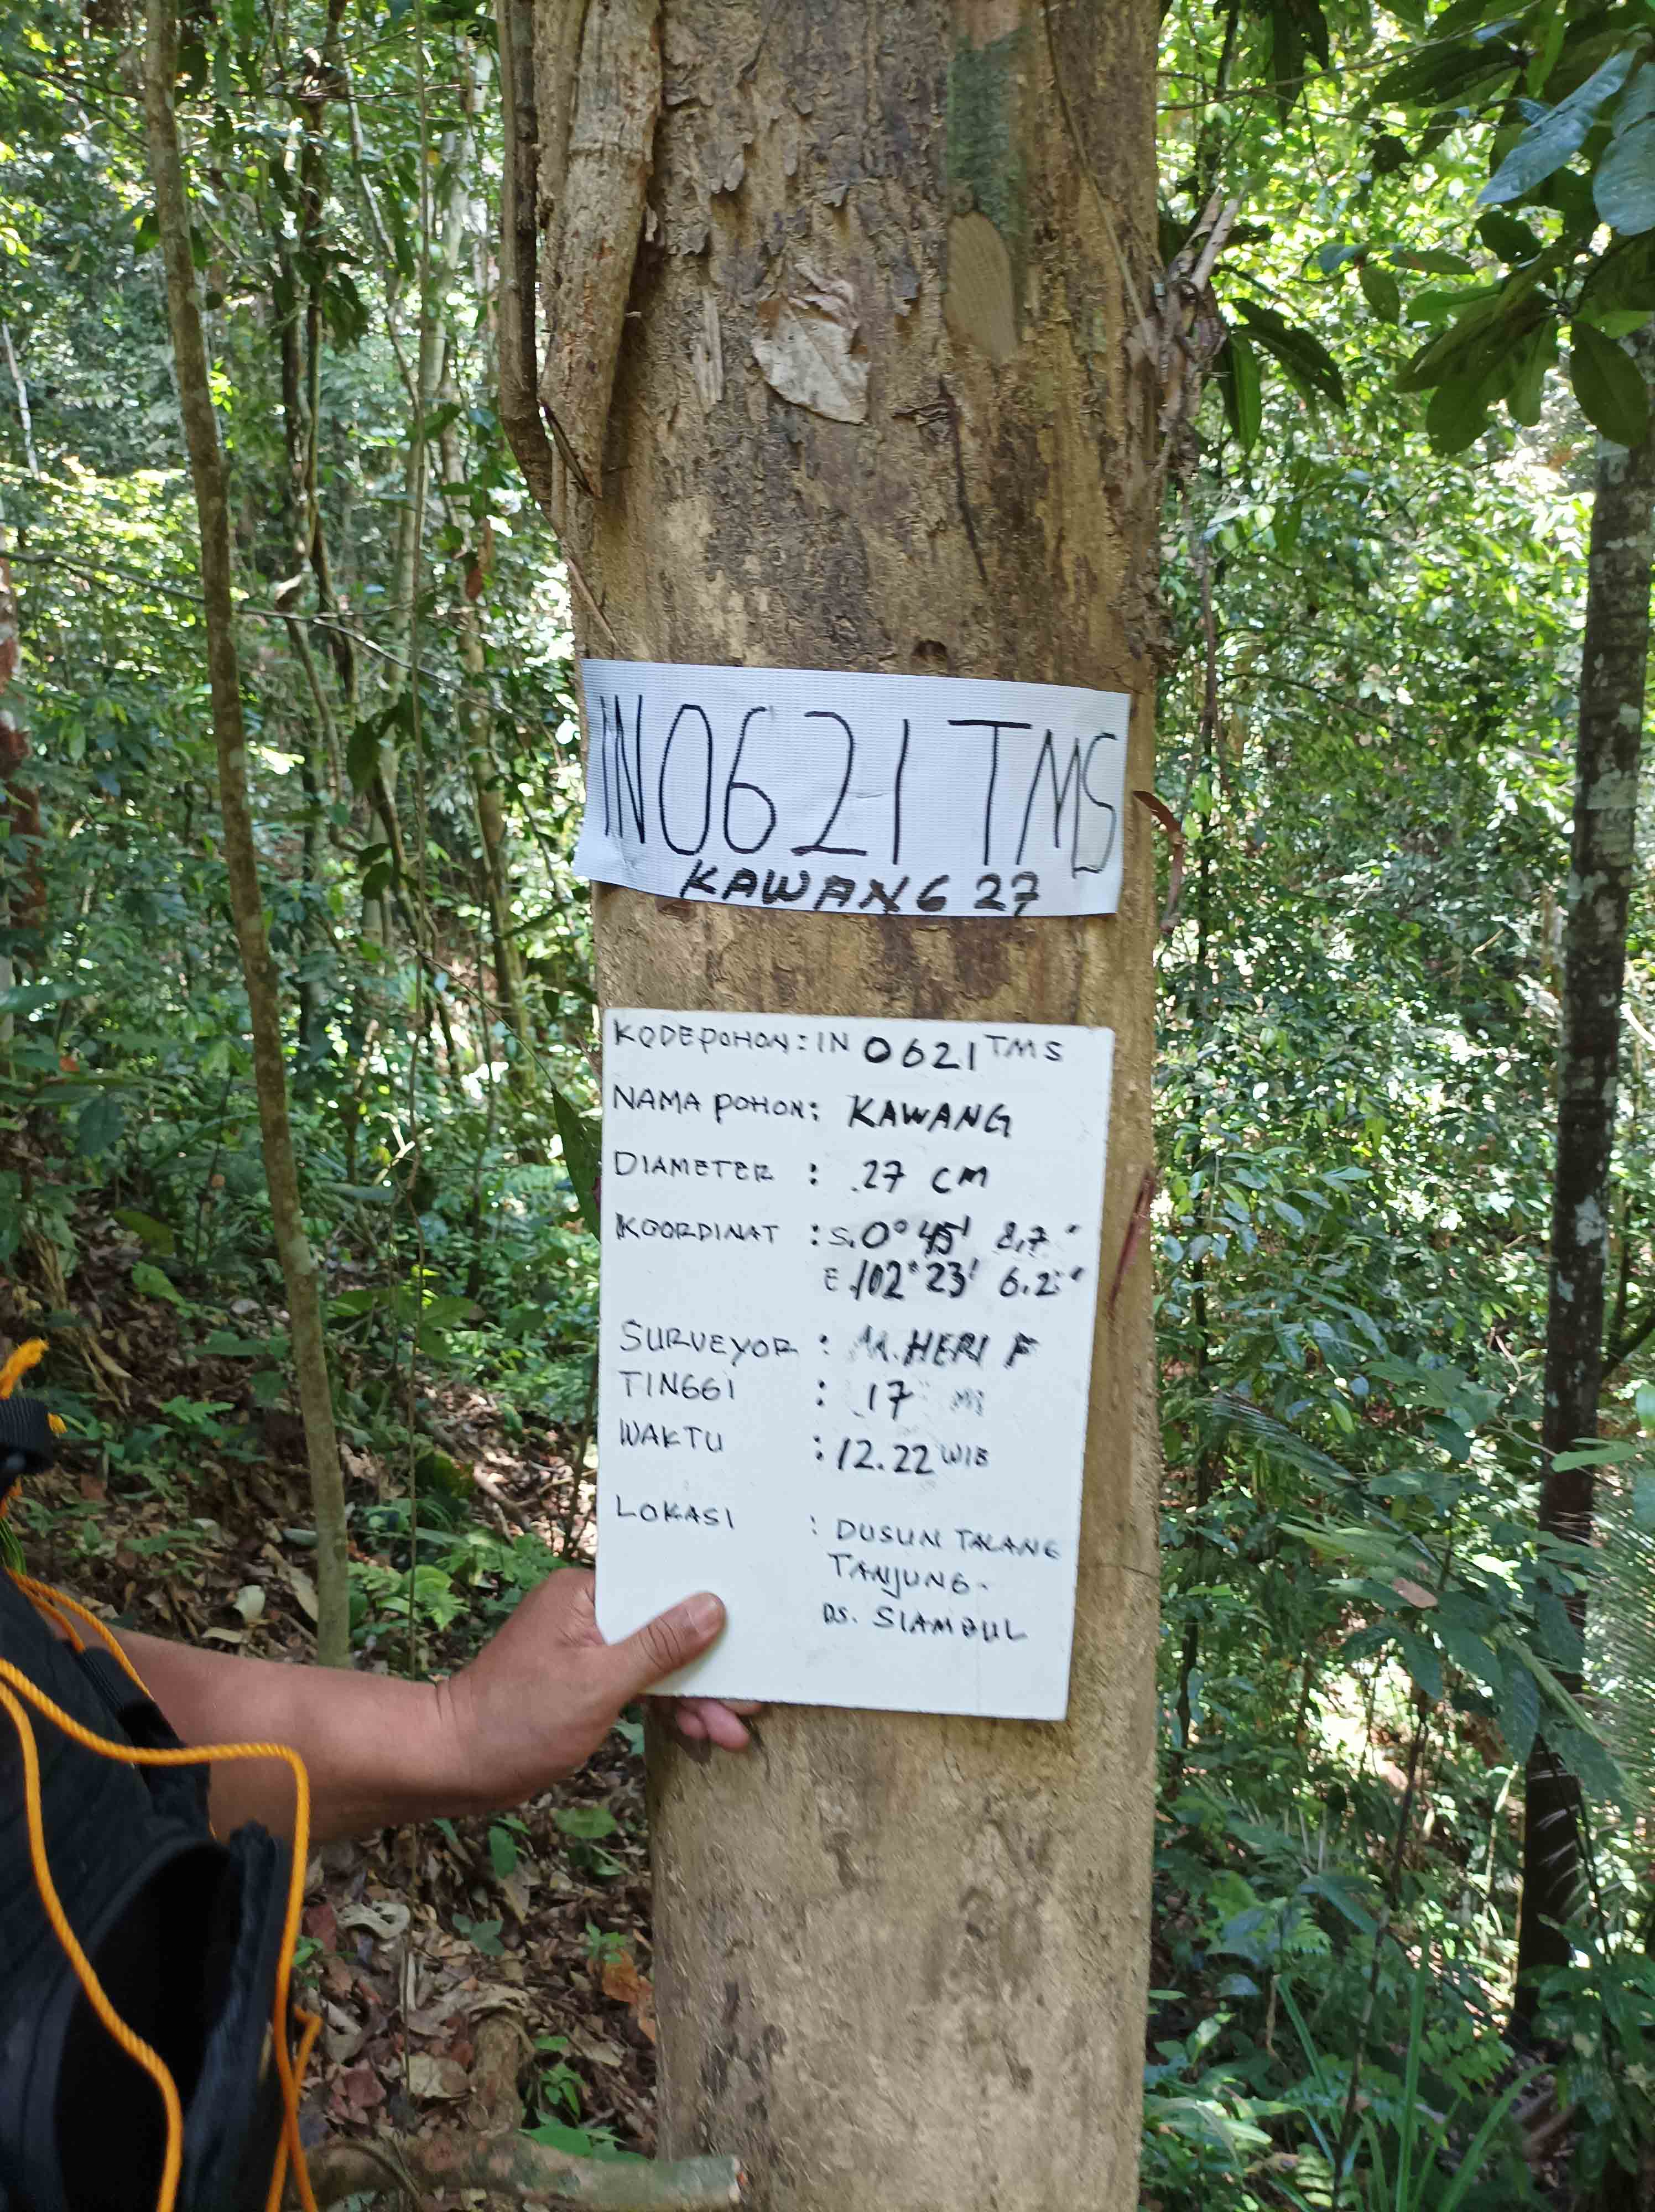 IN0621 TMS
KAWANG 27
KODE POHON : IN 0621 TMS
NAMA POHON : KAWANG
DIAMETER : 27 CM
KOORDINAT : S. 0° 45' 8,7"
E. 102° 23' 6.2"
SURVEYOR : M. HERI F
TINGGI : 17
WAKTU : 12.22 WIB
LOKASI : DUSUN TALANG
TANJUNG.
DS. SIAMBUL